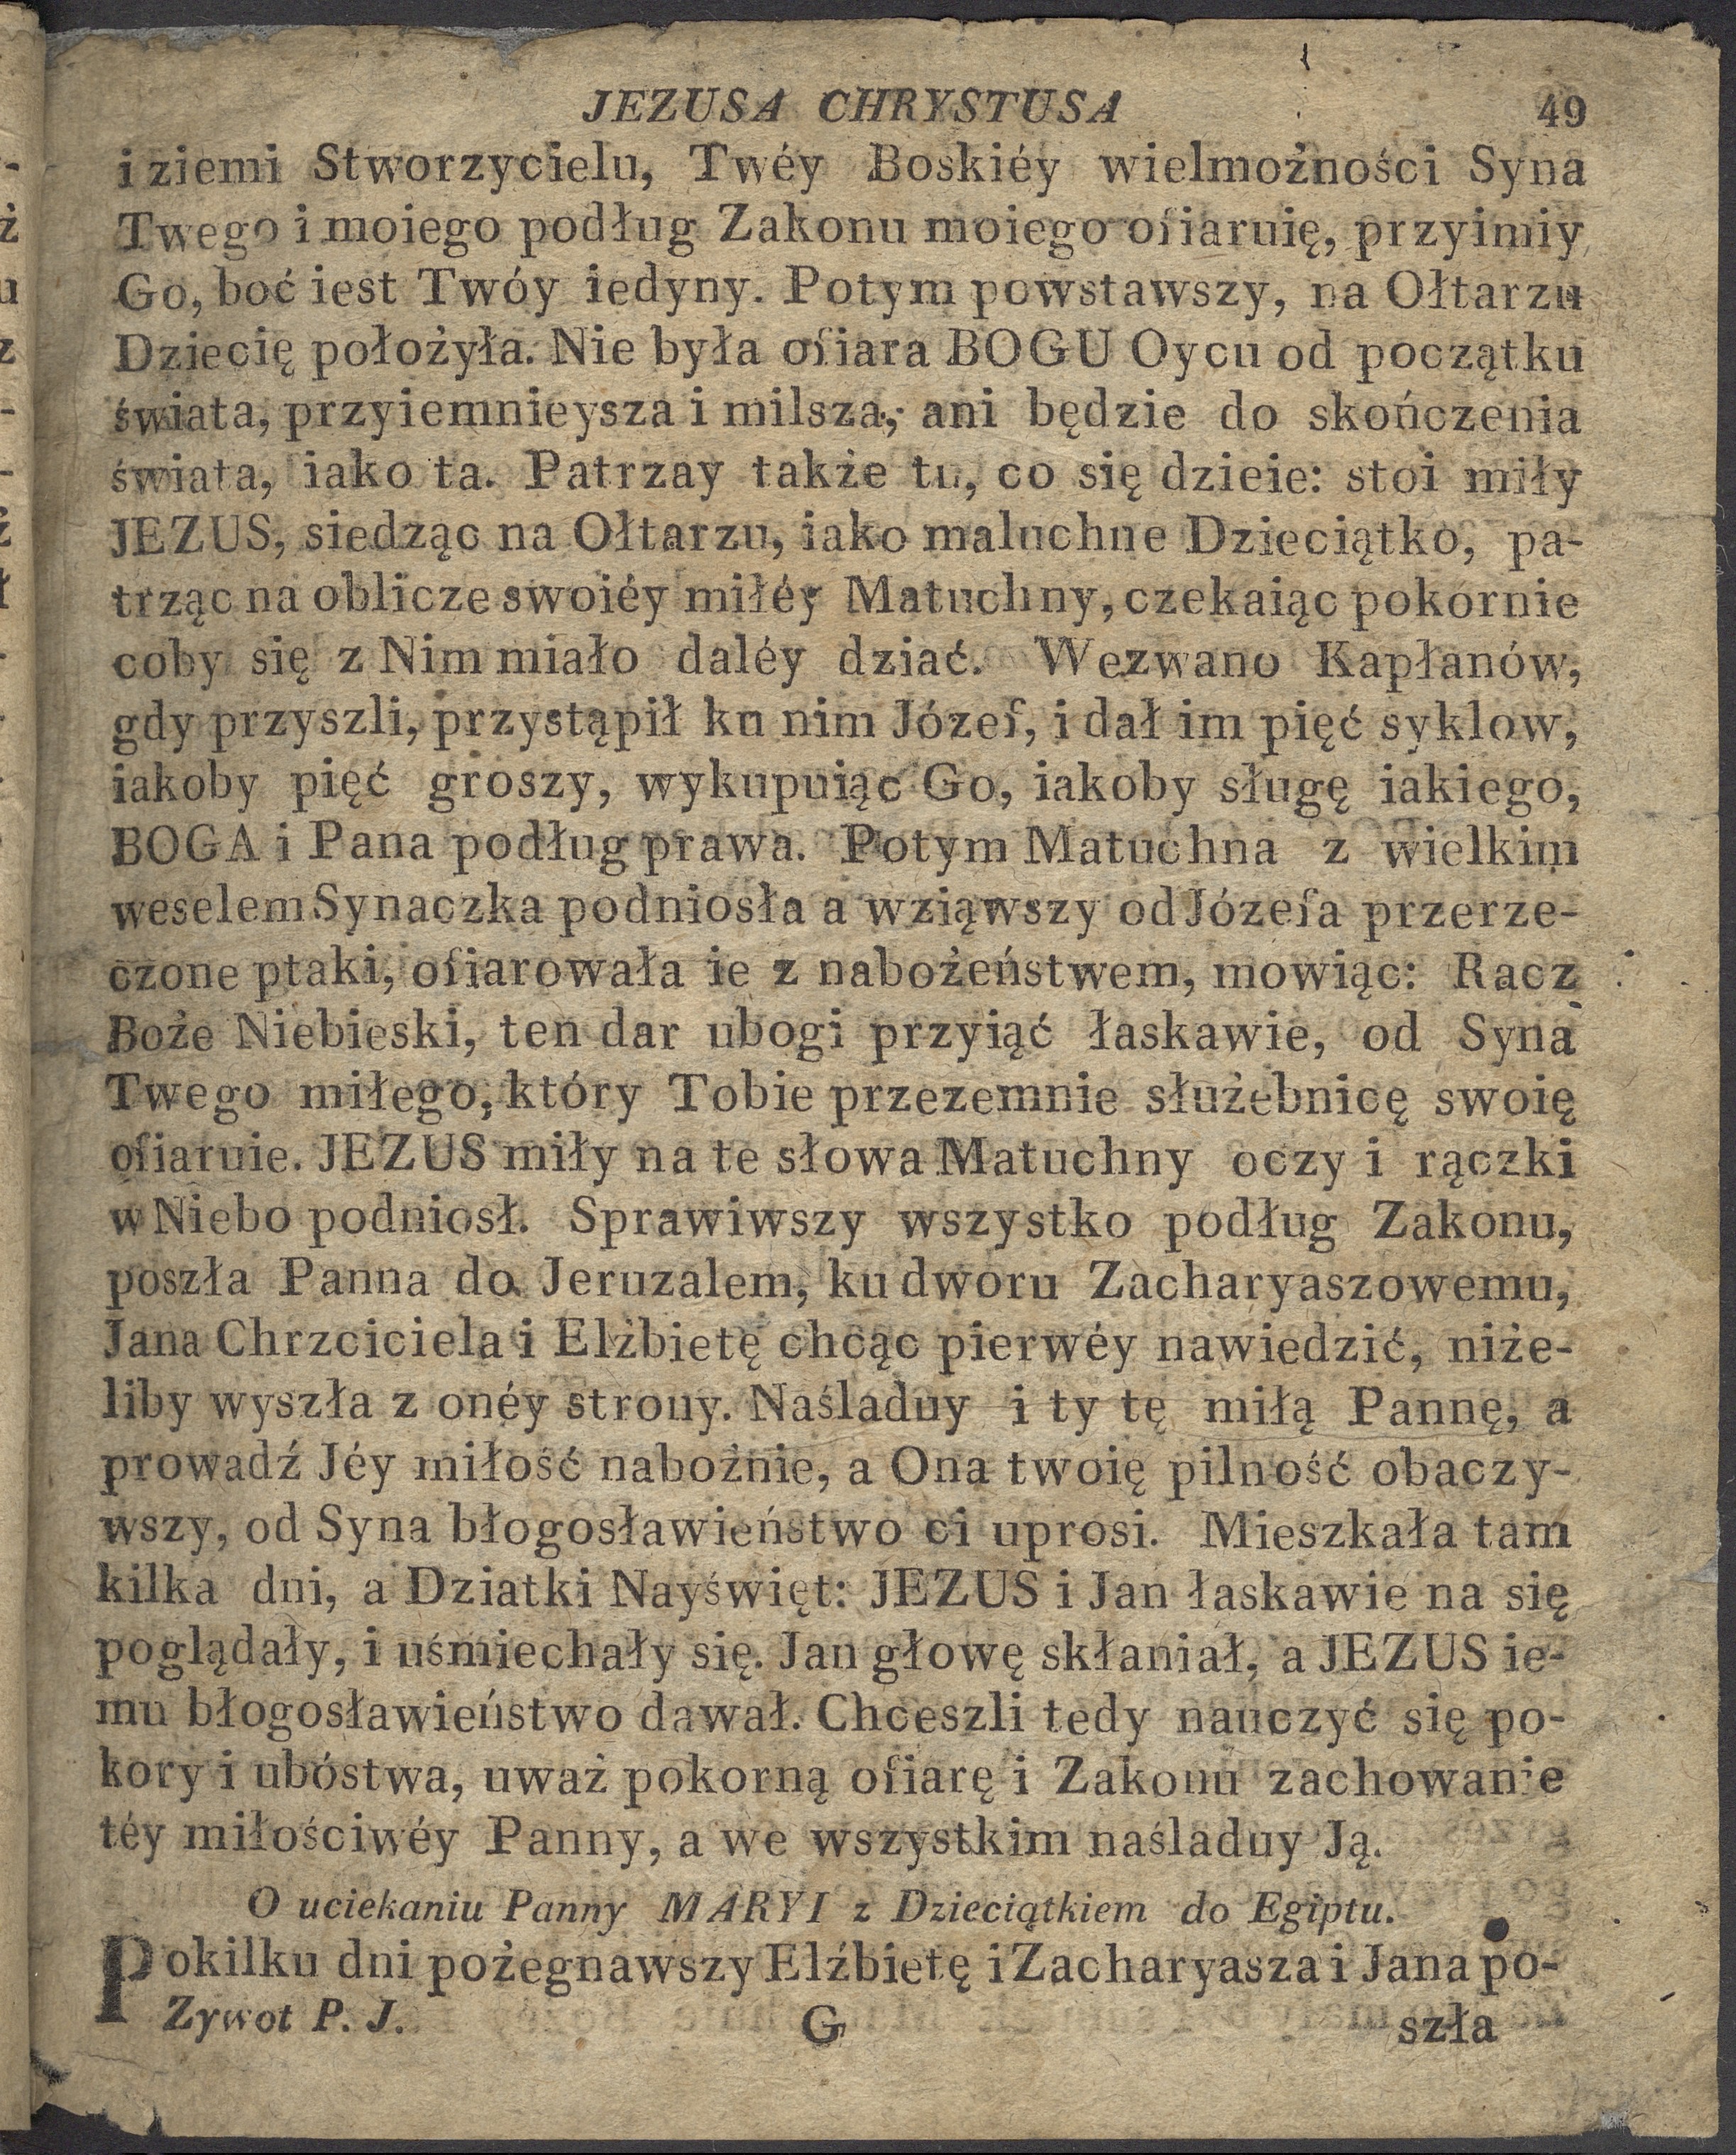 JEZUSA CHRYSTUSA 49
i ziemi Stworzycielu, Twéy Boskiéy wielmożności Syna
Twego i moiego podług Zakonu moiego ofiaruię, przyimiy
Go, boć iest Twóy iedyny. Potym powstawszy, na Ołtarzu
Dziecię położyła. Nie była ofiara BOGU Oycu od początku
świata, przyiemnieysza i milsza, ani będzie do skończenia
świata, iako ta. Patrzay także tu, co się dzieie: stoi miły
JEZUS, siedząc na Ołtarzu, iako maluchne Dzieciątko, pa-
trząc na oblicze swoiéy miłéy Matuchny, czekaiąc pokornie
coby się z Nim miało daléy dziać. Wezwano Kapłanów,
gdy przyszli, przystąpił ku nim Józef, i dał im pięć syklow,
iakoby pięć groszy, wykupuiąc Go, iakoby sługę iakiego,
BOGA i Pana podług prawa. Potym Matuchna z wielkim
weselem Synaczka podniosła a wziąwszy od Józefa przerze-
czone ptaki, ofiarowała ie z nabożeństwem, mowiąc: Racz
Boże Niebieski, ten dar ubogi przyiąć łaskawie, od Syna
Twego miłego, który Tobie przezemnie służebnicę swoię
ofiaruie. JEZUS miły na te słowa Matuchny oczy i rączki
w Niebo podniosł. Sprawiwszy wszystko podług Zakonu,
poszła Panna do Jeruzalem, ku dworu Zacharyaszowemu,
Jana Chrzciciela i Elżbietę chcąc pierwéy nawiedzić, niże-
liby wyszła z onéy strouy. Naśladuy i ty tę miłą Pannę, a
prowadź Jéy miłość nabożnie, a Ona twoię pilność obaczy-
wszy, od Syna błogosławieństwo ci uprosi. Mieszkała tam
kilka dni, a Dziatki Nayświęt: JEZUS i Jan łaskawie na się
poglądały, i uśmiechały się. Jan głowę skłaniał, a JEZUS ie-
mu błogosławieństwo dawał. Chceszli tedy nauczyć się po-
kory i ubóstwa, uważ pokorną ofiarę i Zakonu zachowanie
téy miłościwéy Panny, a we wszystkim naśladuy Ją.
O uciekaniu Panny MARYI z Dzieciątkiem do Egiptu.
Pokilku dni pożegnawszy Elźbietę i Zacharyasza i Jana po-
Zywot P. J. G szła